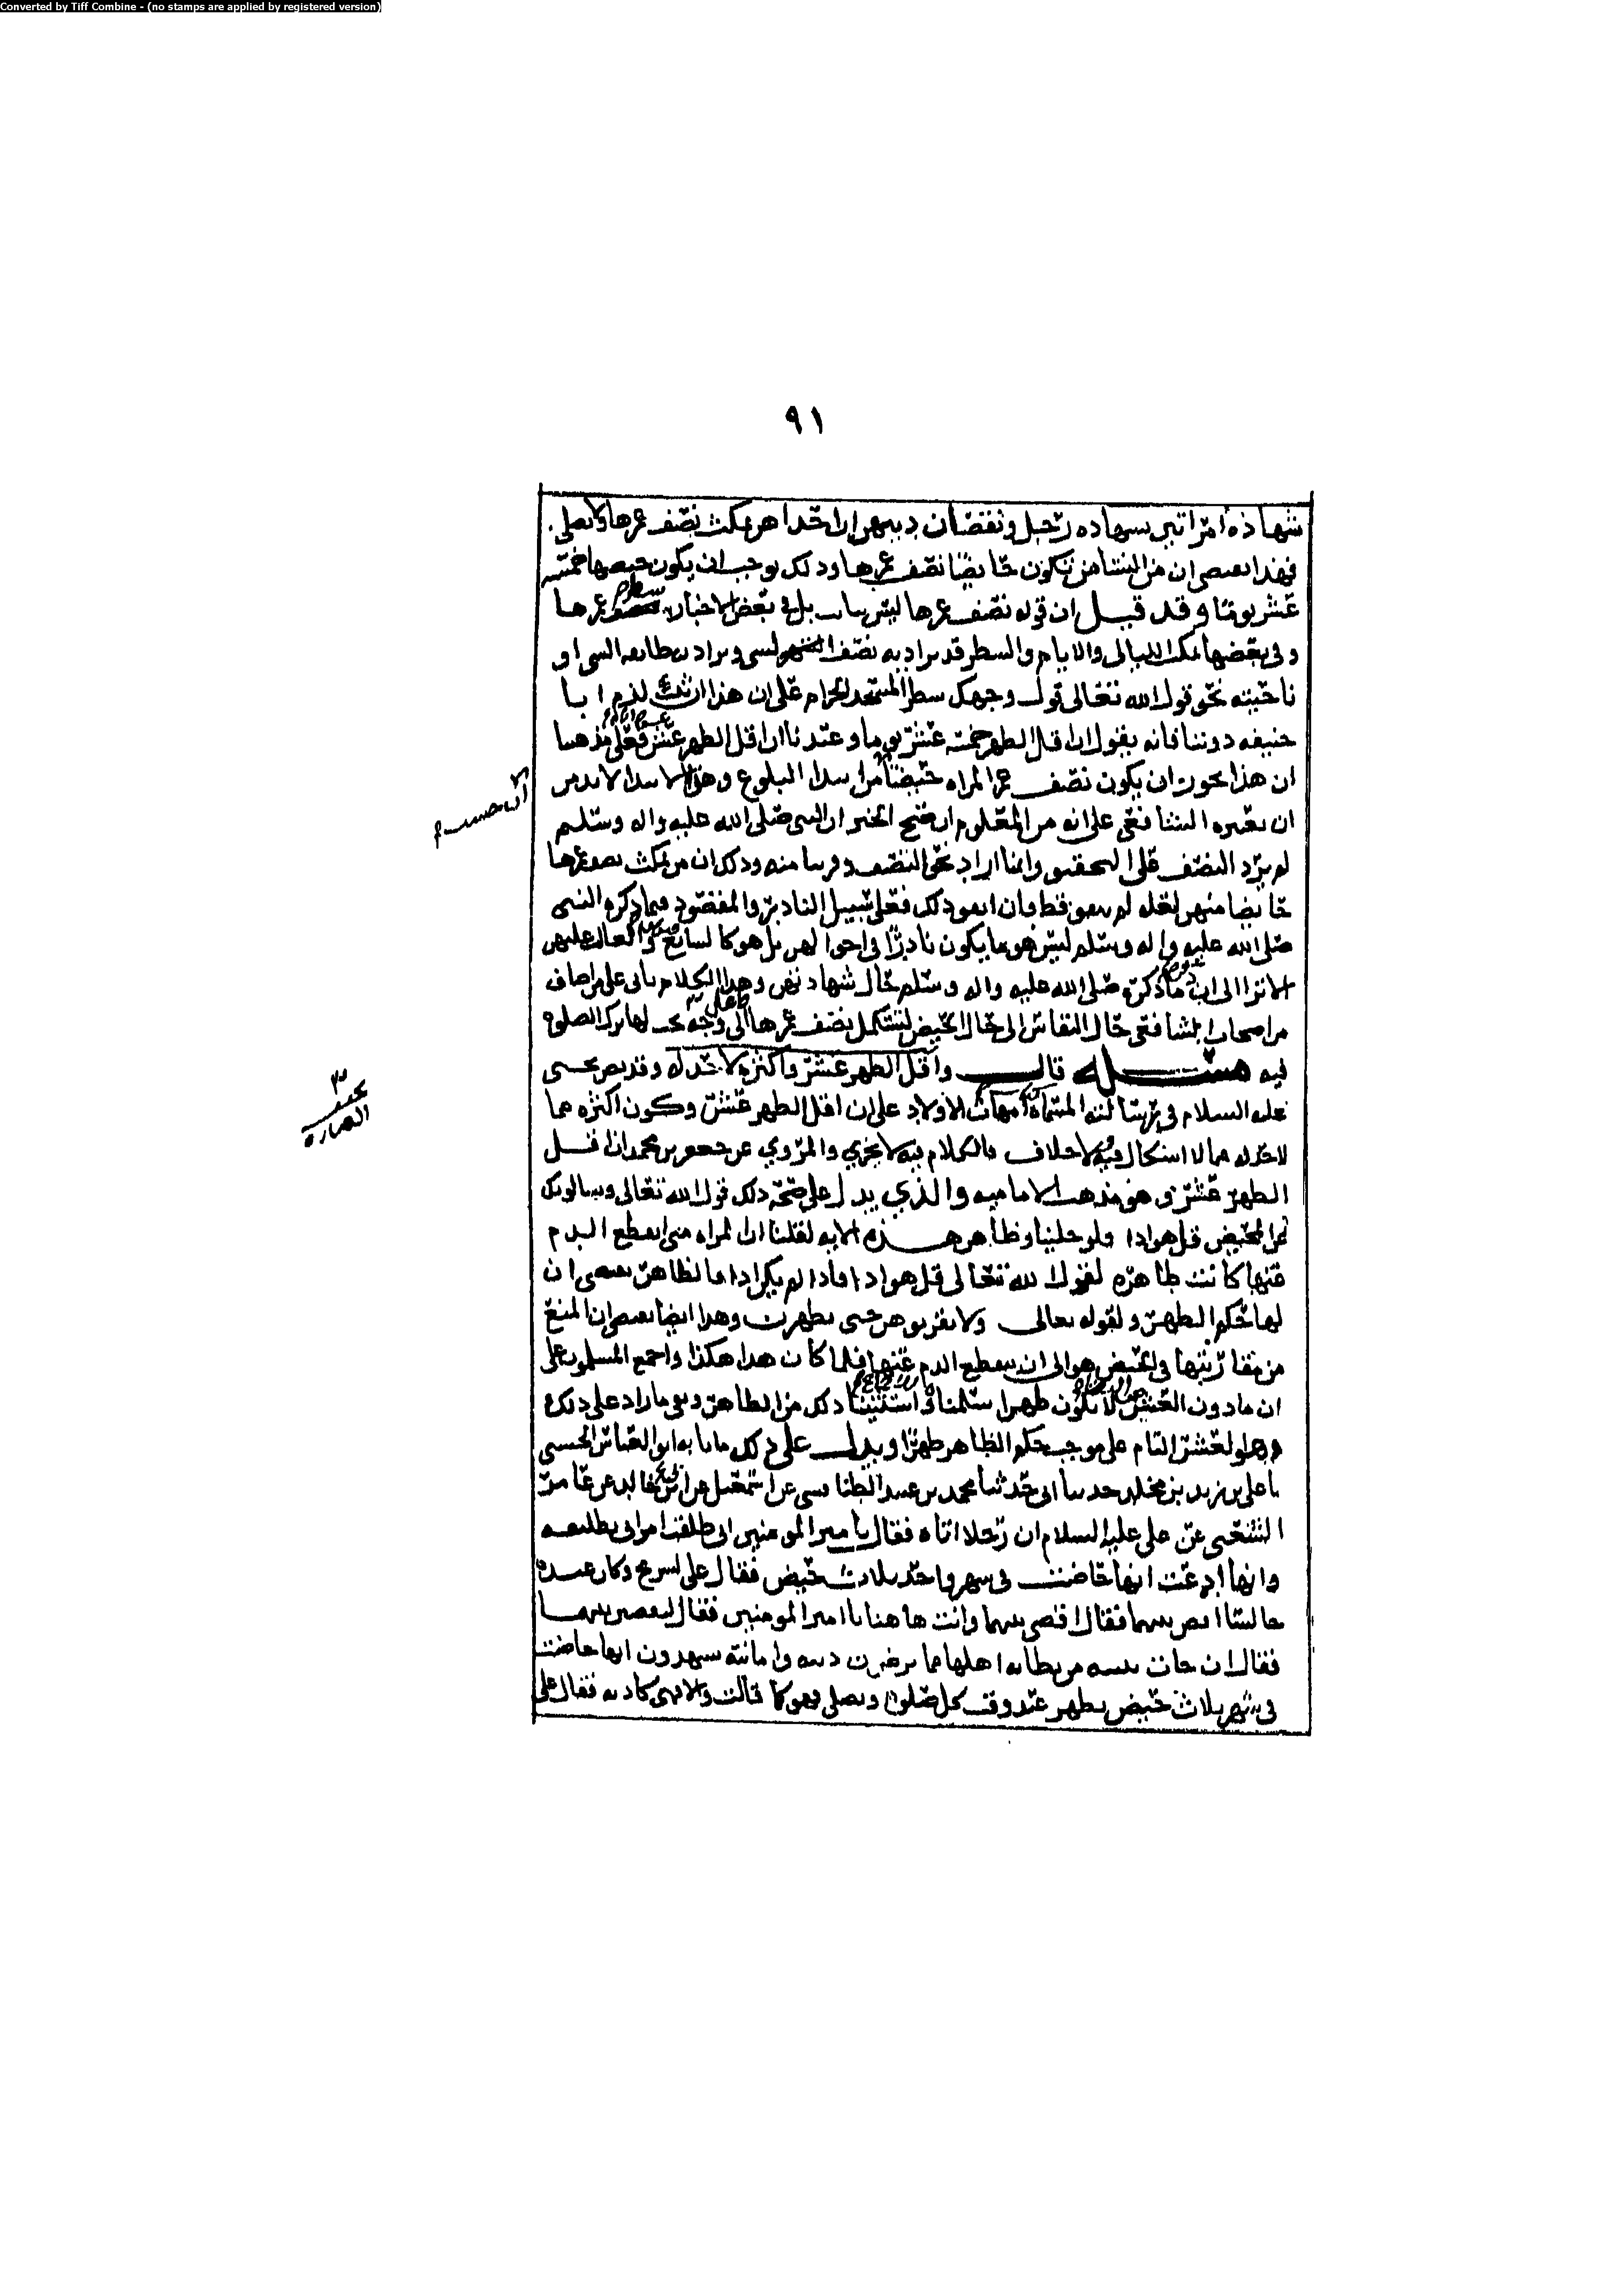 Converted by Tiff Combine - (no stamps are applied by registered version)
٩١
شهادة امراتين بشهاده رجل ونقصان دينهن ان احداهن تمكث نصف عمرها لا تصلي
فهذا يقتضي ان من النساء من تكون حايضا نصف عمرها وذلك يوجب ان يكون حيضها خمسه
عشر يوما وقد قيل ان قوله نصف عمرها ليس بثابت بل في بعض الاخبار شطر عمرها
وفي بعضها تمكث الليالي والايام والشطر قد يراد به نصف الشي ويراد به طايفه الشي او
ناحيته نحو قول الله تعالى فول وجهك شطر المسجد الحرام على ان هذا ان ثبت لزم ابا
حنيفه دوننا فانه يقول ان اقل الطهر خمسه عشر يوما وعندنا ان اقل الطهر عشر فعلى مذهبنا
ان هذا يجوز ان يكون نصف عمر المراه حيضا من ابتدا البلوغ وهذا الابتدا لا بد من
ان يعتبره الشافعي على انه من المعلوم ان صح الخبر ان النبي صلى الله عليه واله وسلم
لم يرد النصف على التحقيق وانما اراد نحو النصف وقريبا منه وذلك ان من تمكث نصف عمرها
حايضا منهن لعله لم يتفق قط وان اتفق ذلك فعلى سبيل النادر والمقصود فيما ذكره النبي
صلى الله عليه واله وسلم ليس هو ما يكون نادرا في احوالهن بل هو كالسايغ والغالب عليهن
الا ترا الى ان ما ذكره صلى الله عليه واله وسلم حال شهادتهن وهذا الكلام ياتي على من اضاف
من اصحاب الشافعي حال النفاس الى حال الحيض لتستكمل نصف عمرها الى وجه يجب لها ترك الصلوه
فيه مسئله قال واقل الطهر عشر واكثره لا حد له وقد نص يحيى
عليه السلام في رسالته المسماه امهات الاولاد على ان اقل الطهر عشر وكون اكثره مما
لا حد له مما لا اشكال فيه ولا خلاف فالكلام فيه لا يجري والمروي عن جعفر بن محمد ان اقل
الطهر عشر وهو مذهب الاماميه والذي يدل على صحة ذلك قول الله تعالى ويسالونك
عن المحيض قل هو اذا ولو خلينا وظاهر هذه الايه لقلنا ان المراه متى انقطع الدم
عنها كانت طاهره لقول الله تعالى قل هو اذا فاذا لم يكن اذا فالظاهر يقتضي ان
لها حكم الطهر ولقوله تعالى ولا تقربوهن حتى يطهرن وهذا ايضا يقتضي ان المنع
من مقاربتها في المحيض هو الى ان ينقطع الدم عنها فلما كان هذا هكذا واجمع المسلمون على
ان ما دون العشر لا يكون طهرا سلمناه واستثنينا ذلك من الظاهر وبقي ما زاد على ذلك
وهو العشر التام على موجب حكم الظاهر طهرا ويدل على ذلك ما نا به ابو العباس الحسني
نا علي بن يزيد بن مخلد حدثنا ابي حدثنا محمد بن عبيد الطنافسي عن اسمعيل بن ابي خالد عن عامر
الشعبي عن علي عليه السلام ان رجلا اتاه فقال يا امير المومنين اني طلقت امراتي تطليقه
وانها ادعت انها حاضت في شهر واحد ثلاث حيض فقال علي لشريح وكان عنده
جالسا اقض بينهما فقال اقضي بينهما وانت ها هنا يا امير المومنين فقال لتقضين بينهما
فقال ان جات ببينه من بطانه اهلها مما يرضون دينه وامانته يشهدون انها حاضت
في شهر ثلاث حيض تطهر عند وقت كل صلوه وتصلي فهو كما قالت والا فهي كاذبه فقال علي